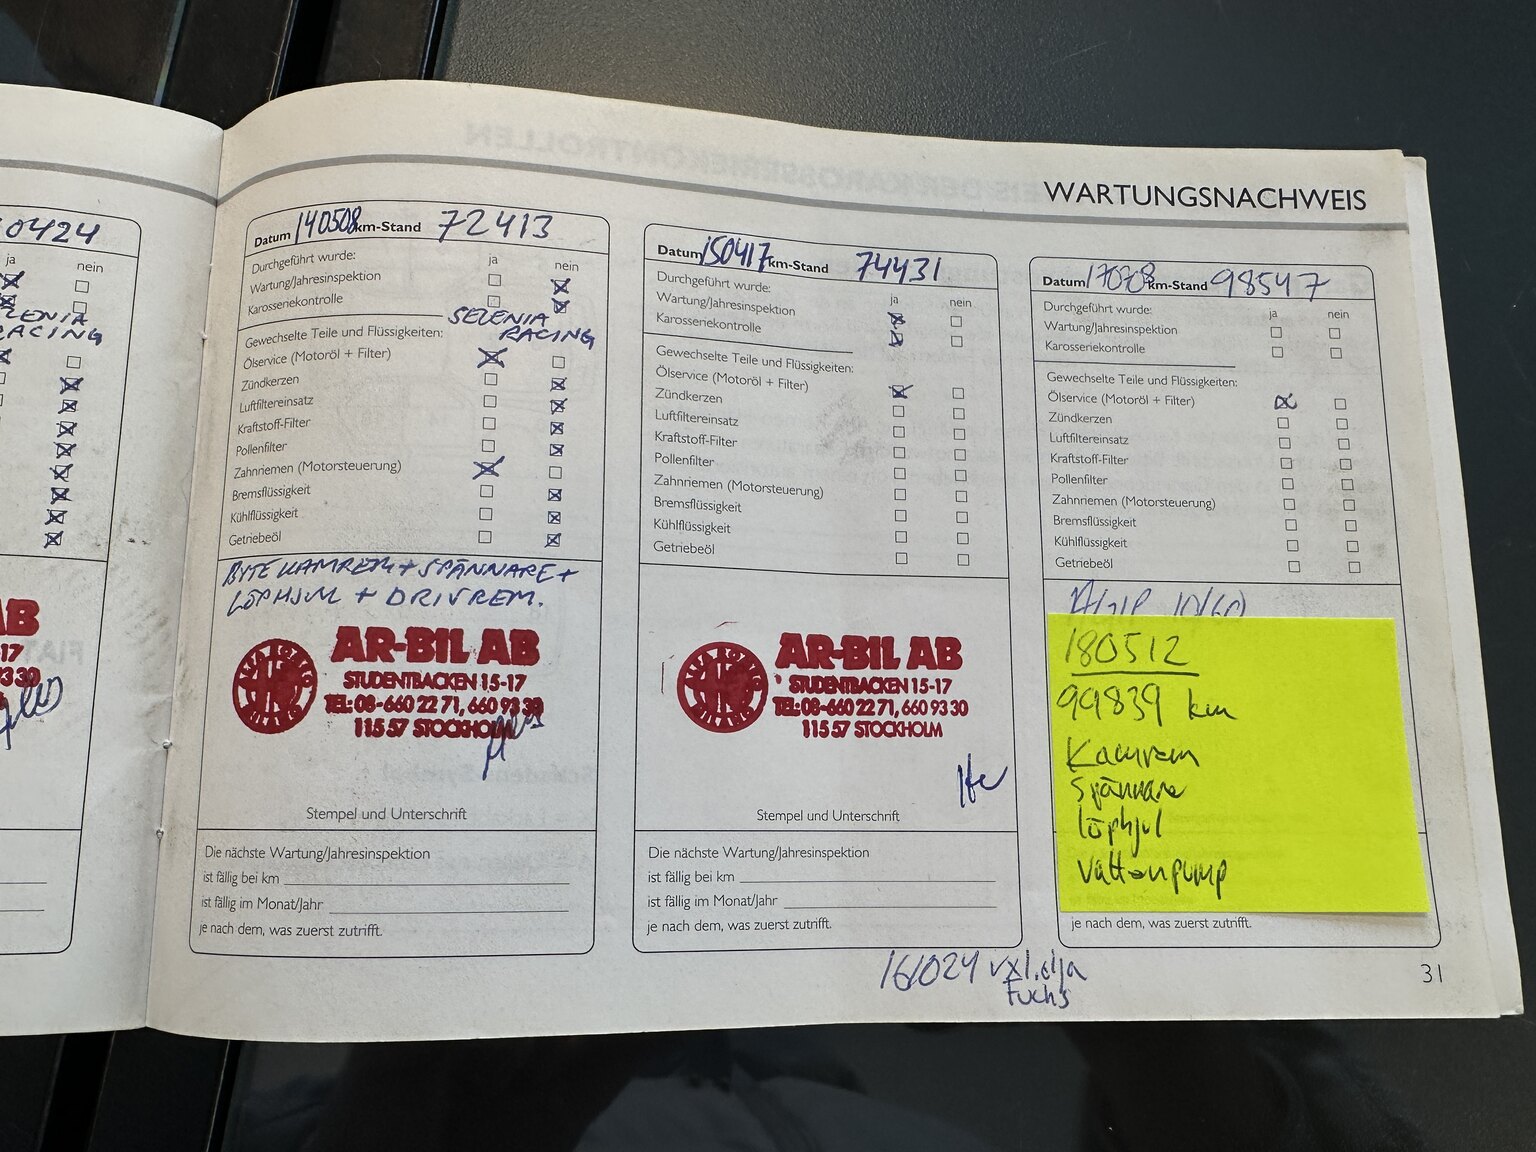 WARTUNGSNACHWEIS
0424
ja nein
RACING
AB
-17
Datum 140508 km-Stand 72413
Durchgeführt wurde: ja nein
Wartung/Jahresinspektion
Karosseriekontrolle
SELENIA
Gewechselte Teile und Flüssigkeiten: RACING
Ölservice (Motoröl + Filter)
Zündkerzen
Luftfiltereinsatz
Kraftstoff-Filter
Pollenfilter
Zahnriemen (Motorsteuerung)
Bremsflüssigkeit
Kühlflüssigkeit
Getriebeöl
BYTE KAMREM + SPÄNNARE +
LÖPHJUL + DRIVREM.
ALFA ROMEO
MILANO
AR-BIL AB
STUDENTBACKEN 15-17
TEL: 08-660 22 71, 660 93 30
115 57 STOCKHOLM
Stempel und Unterschrift
Die nächste Wartung/Jahresinspektion
ist fällig bei km
ist fällig im Monat/Jahr
je nach dem, was zuerst zutrifft.
Datum 150417 km-Stand 74431
Durchgeführt wurde: ja nein
Wartung/Jahresinspektion
Karosseriekontrolle
Gewechselte Teile und Flüssigkeiten:
Ölservice (Motoröl + Filter)
Zündkerzen
Luftfiltereinsatz
Kraftstoff-Filter
Pollenfilter
Zahnriemen (Motorsteuerung)
Bremsflüssigkeit
Kühlflüssigkeit
Getriebeöl
ALFA ROMEO
MILANO
AR-BIL AB
STUDENTBACKEN 15-17
TEL: 08-660 22 71, 660 93 30
115 57 STOCKHOLM
Stempel und Unterschrift
Die nächste Wartung/Jahresinspektion
ist fällig bei km
ist fällig im Monat/Jahr
je nach dem, was zuerst zutrifft.
Datum 170708 km-Stand 98547
Durchgeführt wurde: ja nein
Wartung/Jahresinspektion
Karosseriekontrolle
Gewechselte Teile und Flüssigkeiten:
Ölservice (Motoröl + Filter)
Zündkerzen
Luftfiltereinsatz
Kraftstoff-Filter
Pollenfilter
Zahnriemen (Motorsteuerung)
Bremsflüssigkeit
Kühlflüssigkeit
Getriebeöl
10/60
180512
99839 km
Kamrem
Spännare
löphjul
Vattenpump
je nach dem, was zuerst zutrifft.
161024 vxl.olja
Fuchs
31